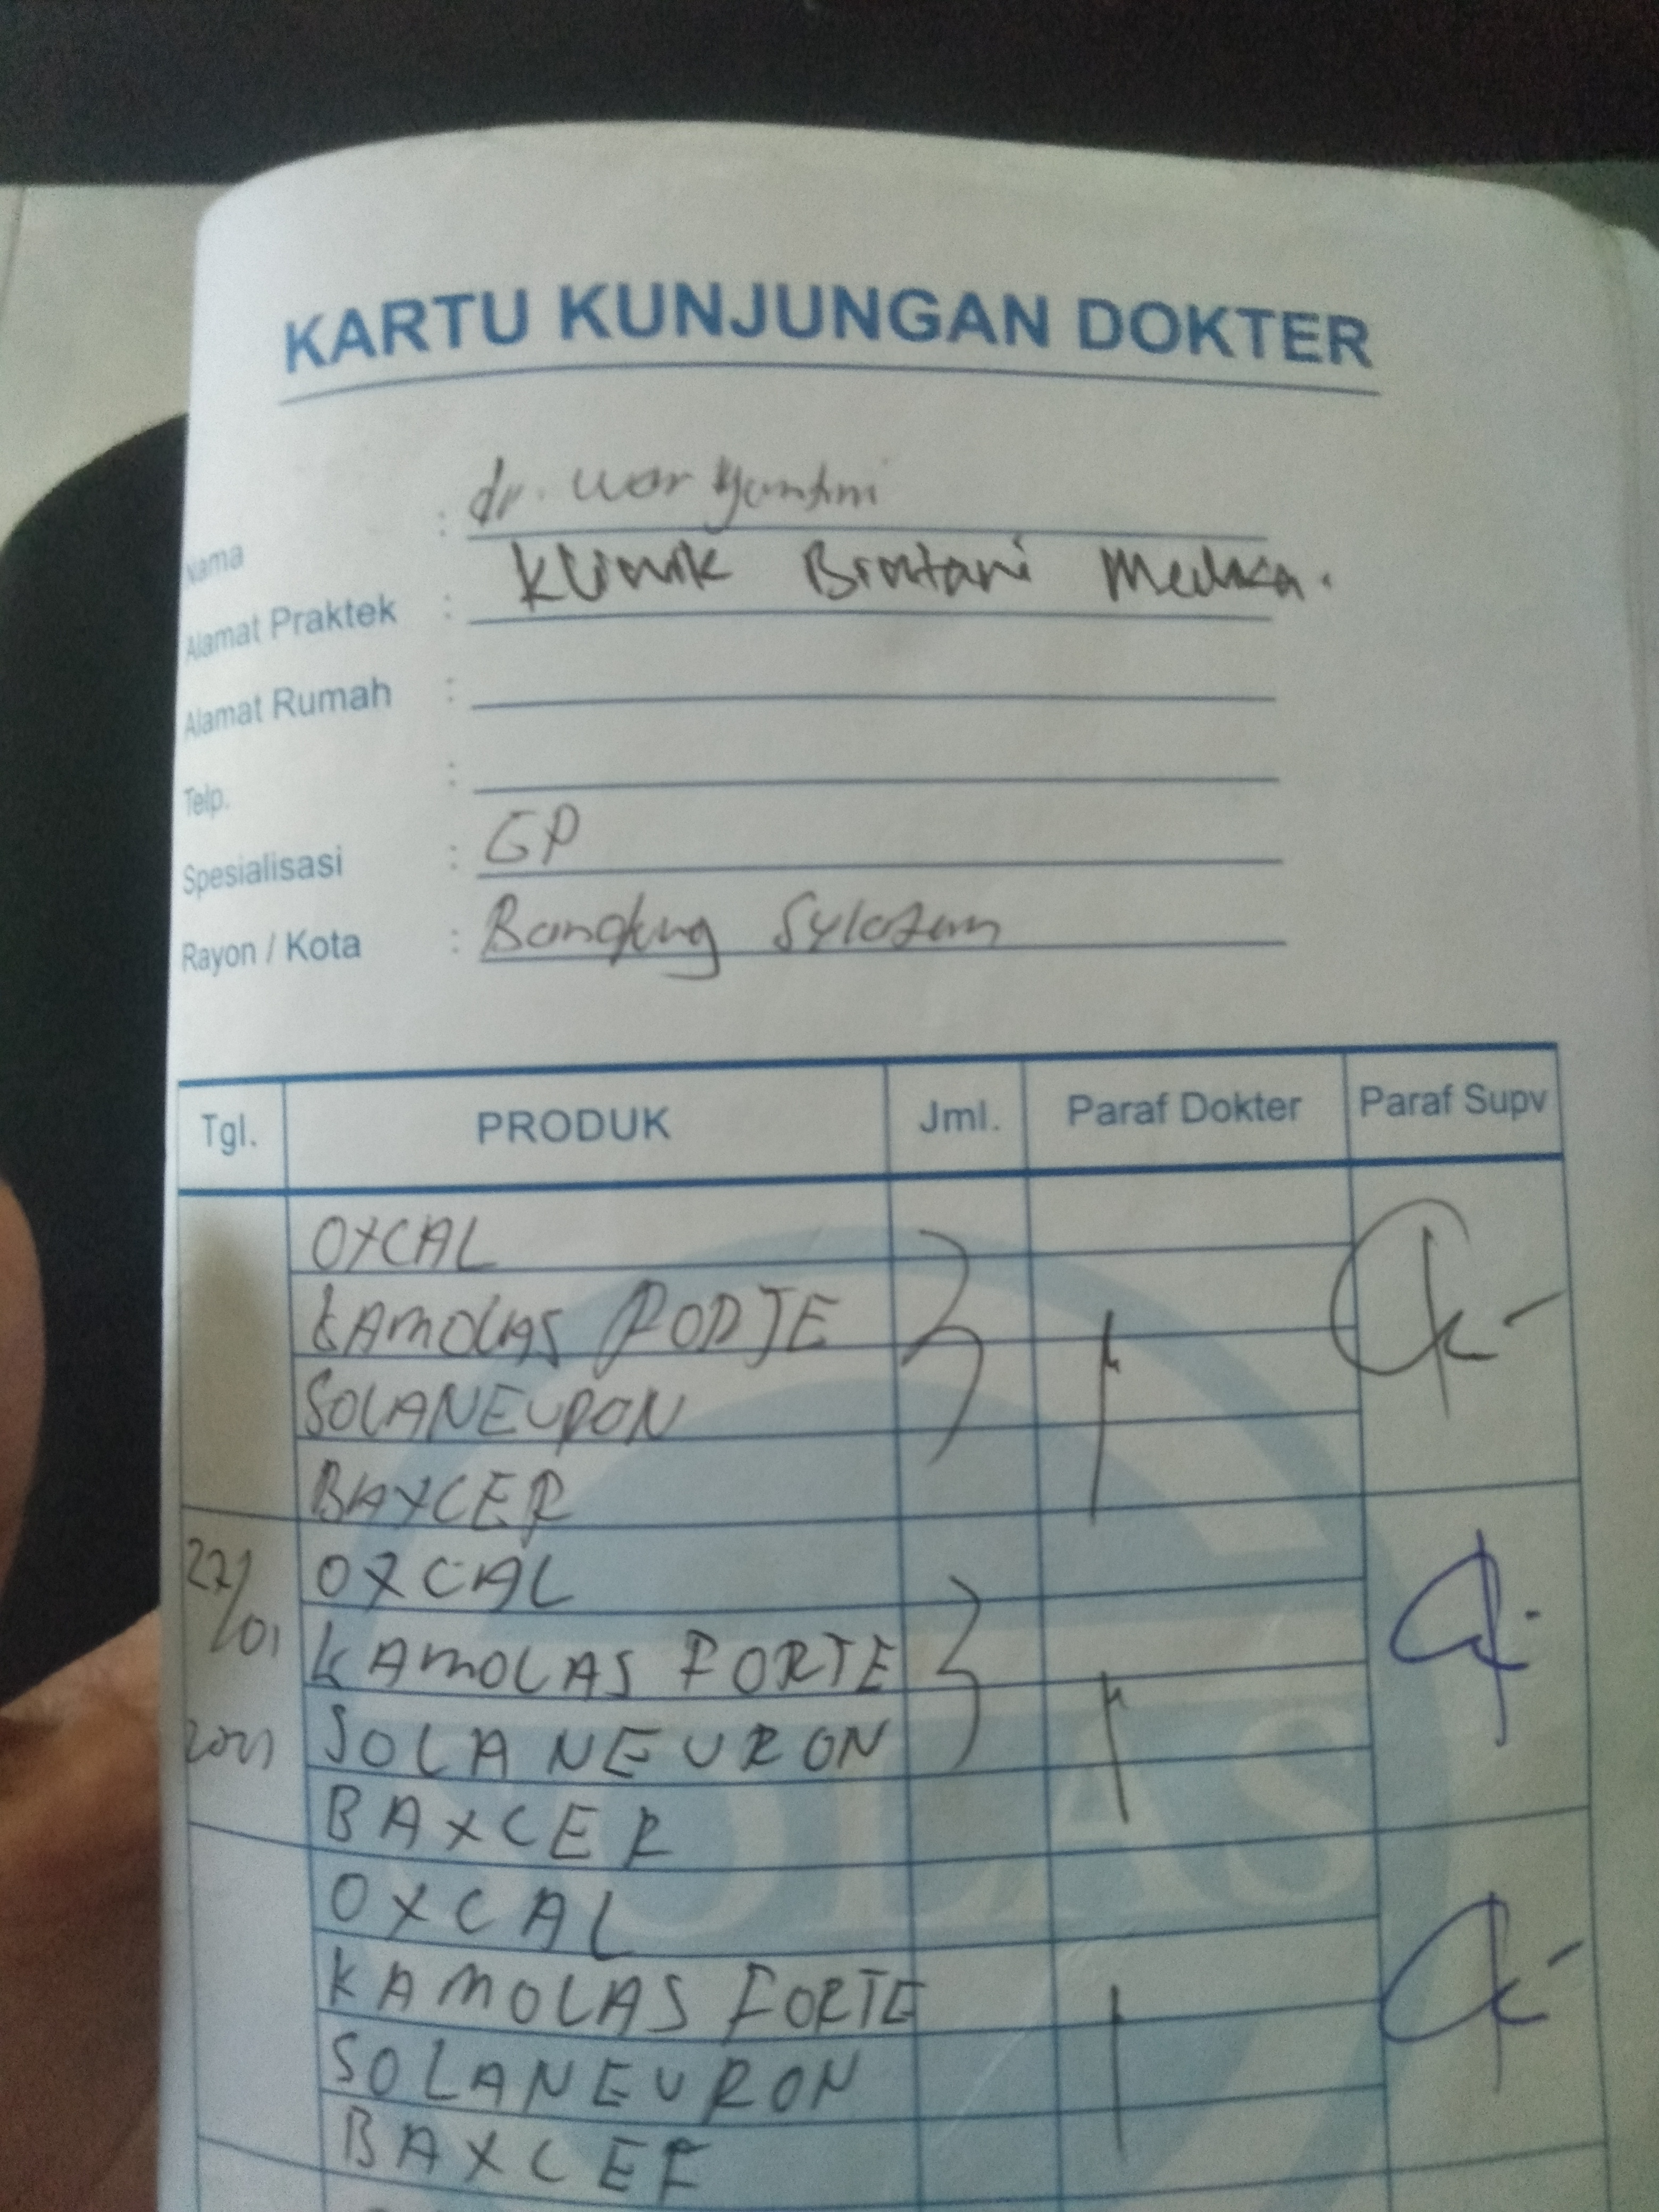 KARTU KUNJUNGAN DOKTER
Nama : dr. war yantini
Alamat Praktek : Klinik Bintani Medika.
Alamat Rumah :
Telp. :
Spesialisasi : GP
Rayon / Kota : Bandung
Tgl. PRODUK Jml. Paraf Dokter Paraf Supv
OXCAL
KAMOLAS FORTE
SOLANEURON
BAXCER
27/01 OXCAL
KAMOLAS FORTE
2021 SOLANEURON
BAXCER
OXCAL
KAMOLAS FORTE
SOLANEURON
BAXCEF
OLAS